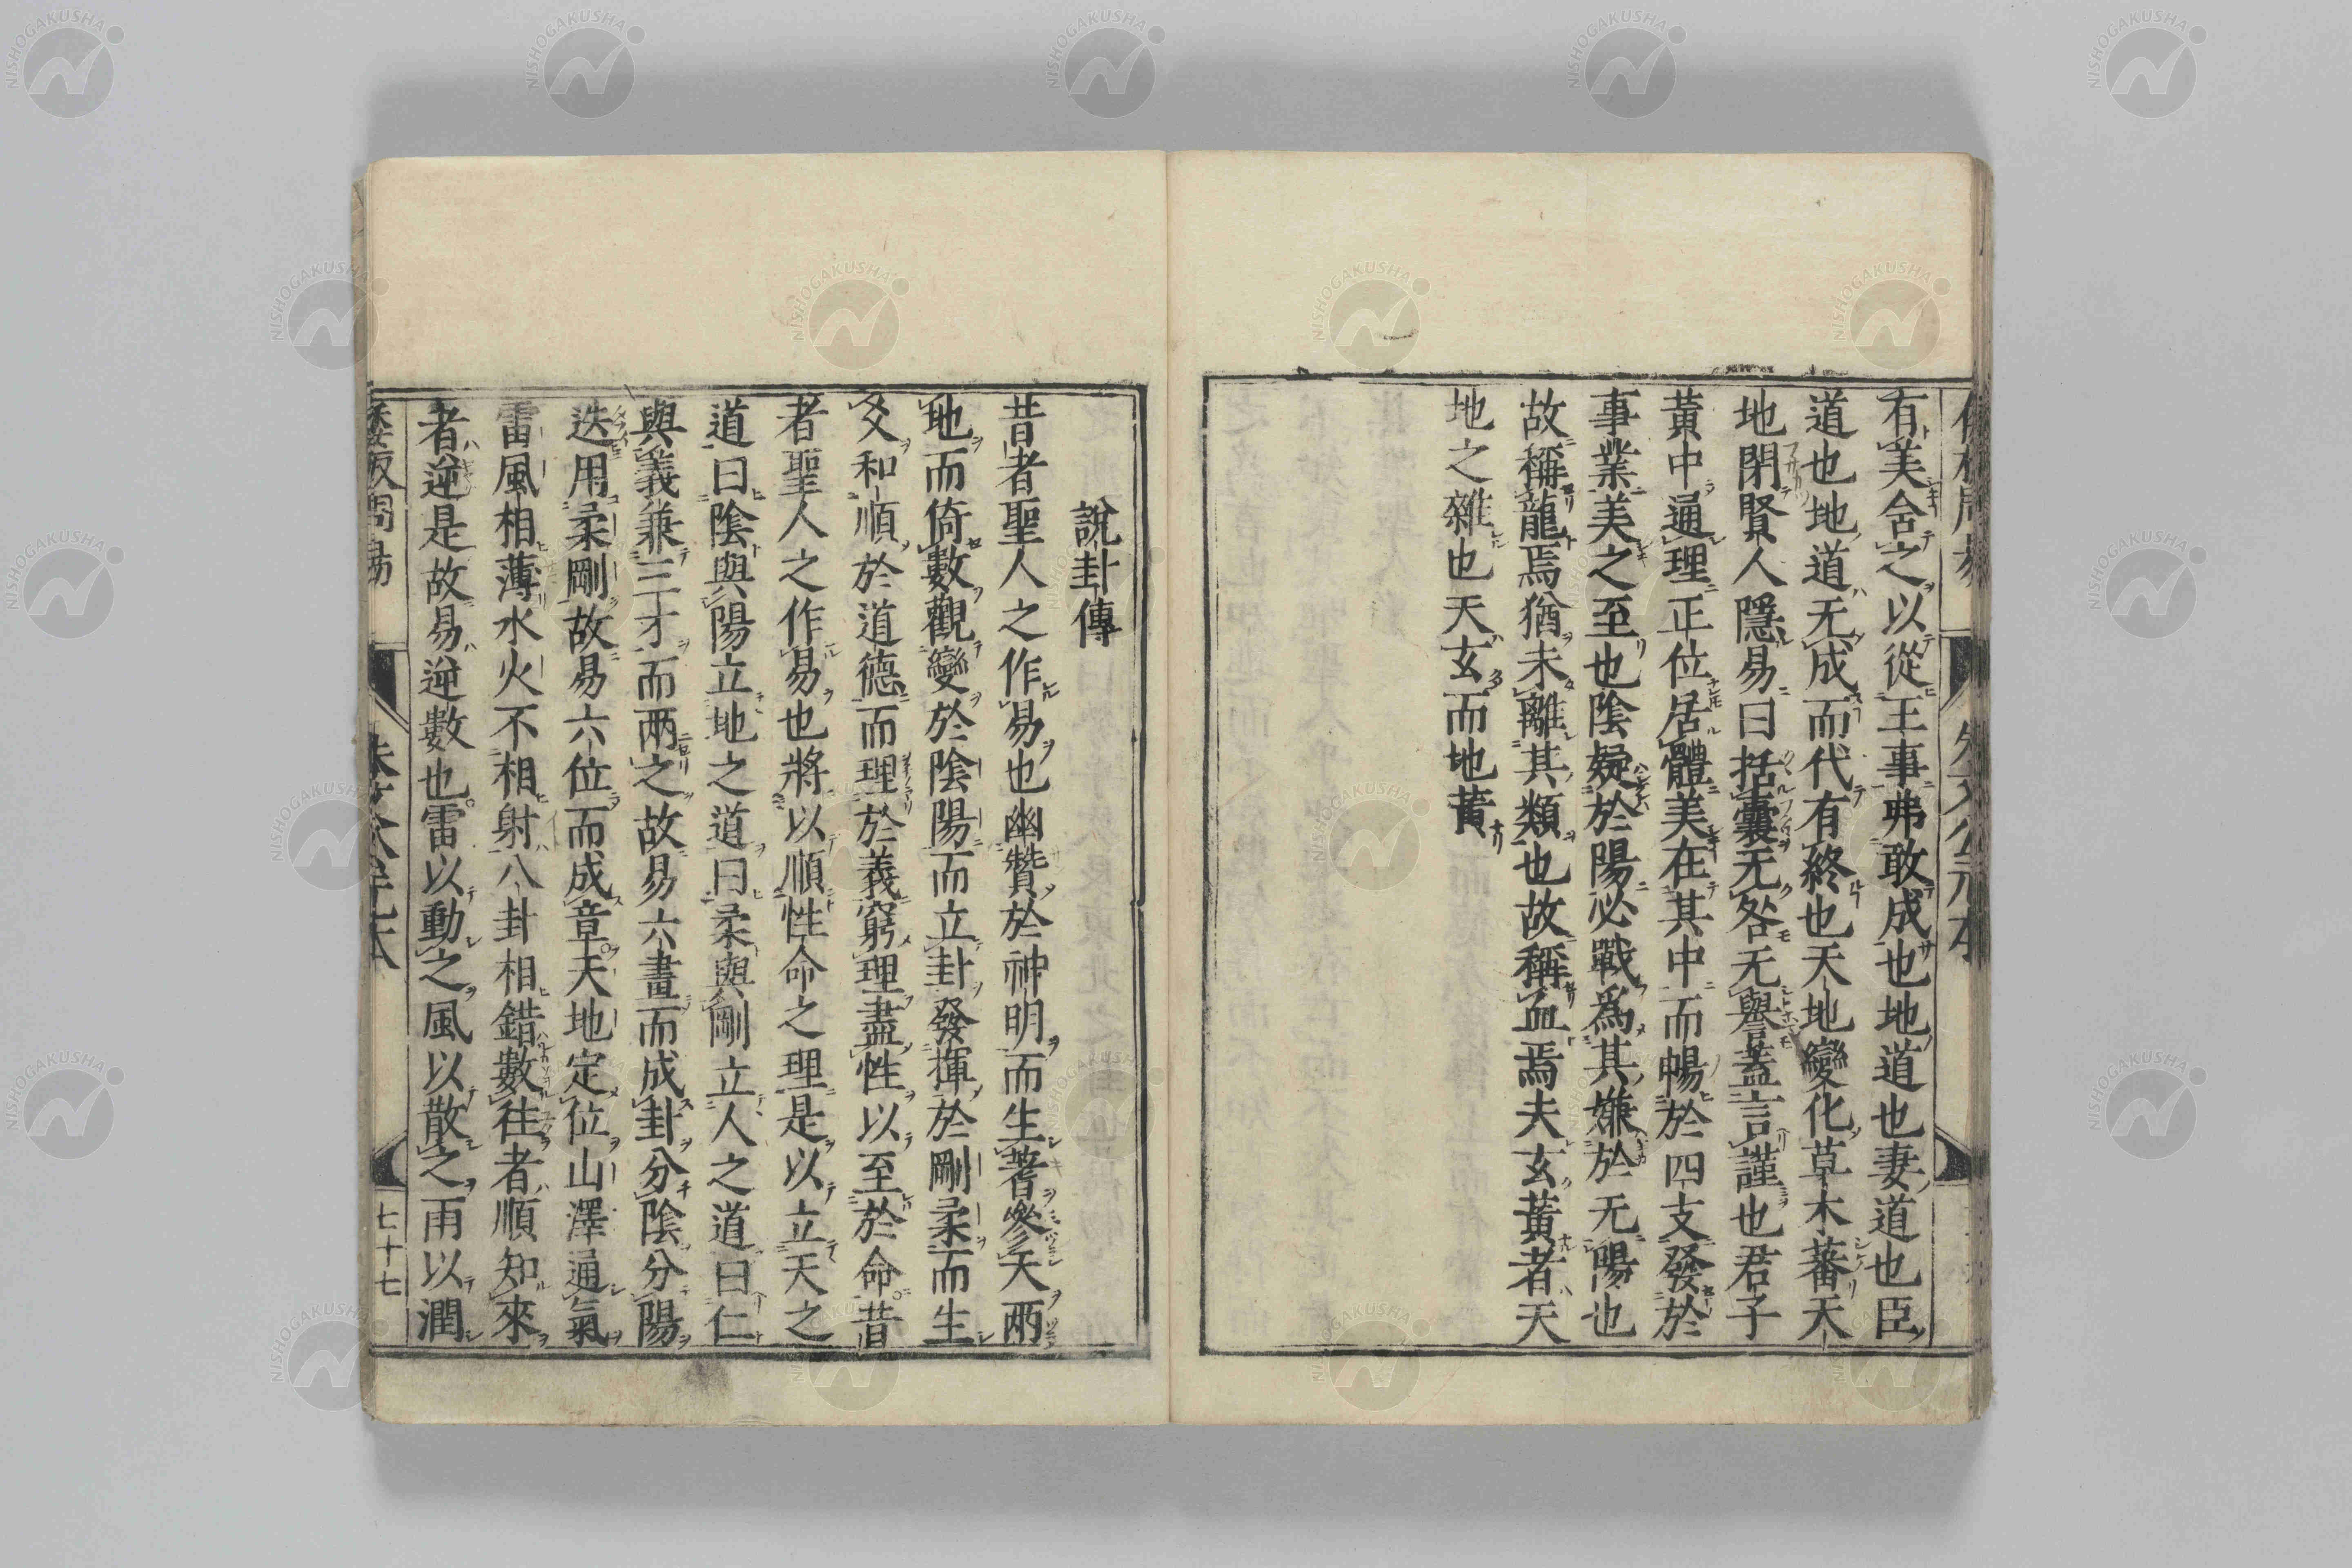 有美含之以從王事弗敢成也地道也妻道也臣
道也地道无成而代有終也天地變化草木蕃天
地閉賢人隱易曰括囊无咎无譽蓋言謹也君子
黃中通理正位居體美在其中而暢於四支發於
事業美之至也陰疑於陽必戰爲其嫌於无陽也
故稱龍焉猶未離其類也故稱血焉夫玄黃者天
地之雜也天玄而地黃
說卦傳
昔者聖人之作易也幽贊於神明而生蓍參天兩
地而倚數觀變於陰陽而立卦發揮於剛柔而生
爻和順於道德而理於義窮理盡性以至於命昔
者聖人之作易也將以順性命之理是以立天之
道曰陰與陽立地之道曰柔與剛立人之道曰仁
與義兼三才而兩之故易六畫而成卦分陰分陽
迭用柔剛故易六位而成章天地定位山澤通氣
雷風相薄水火不相射八卦相錯數往者順知來
者逆是故易逆數也雷以動之風以散之雨以潤
七十七
NISHOGAKUSHA